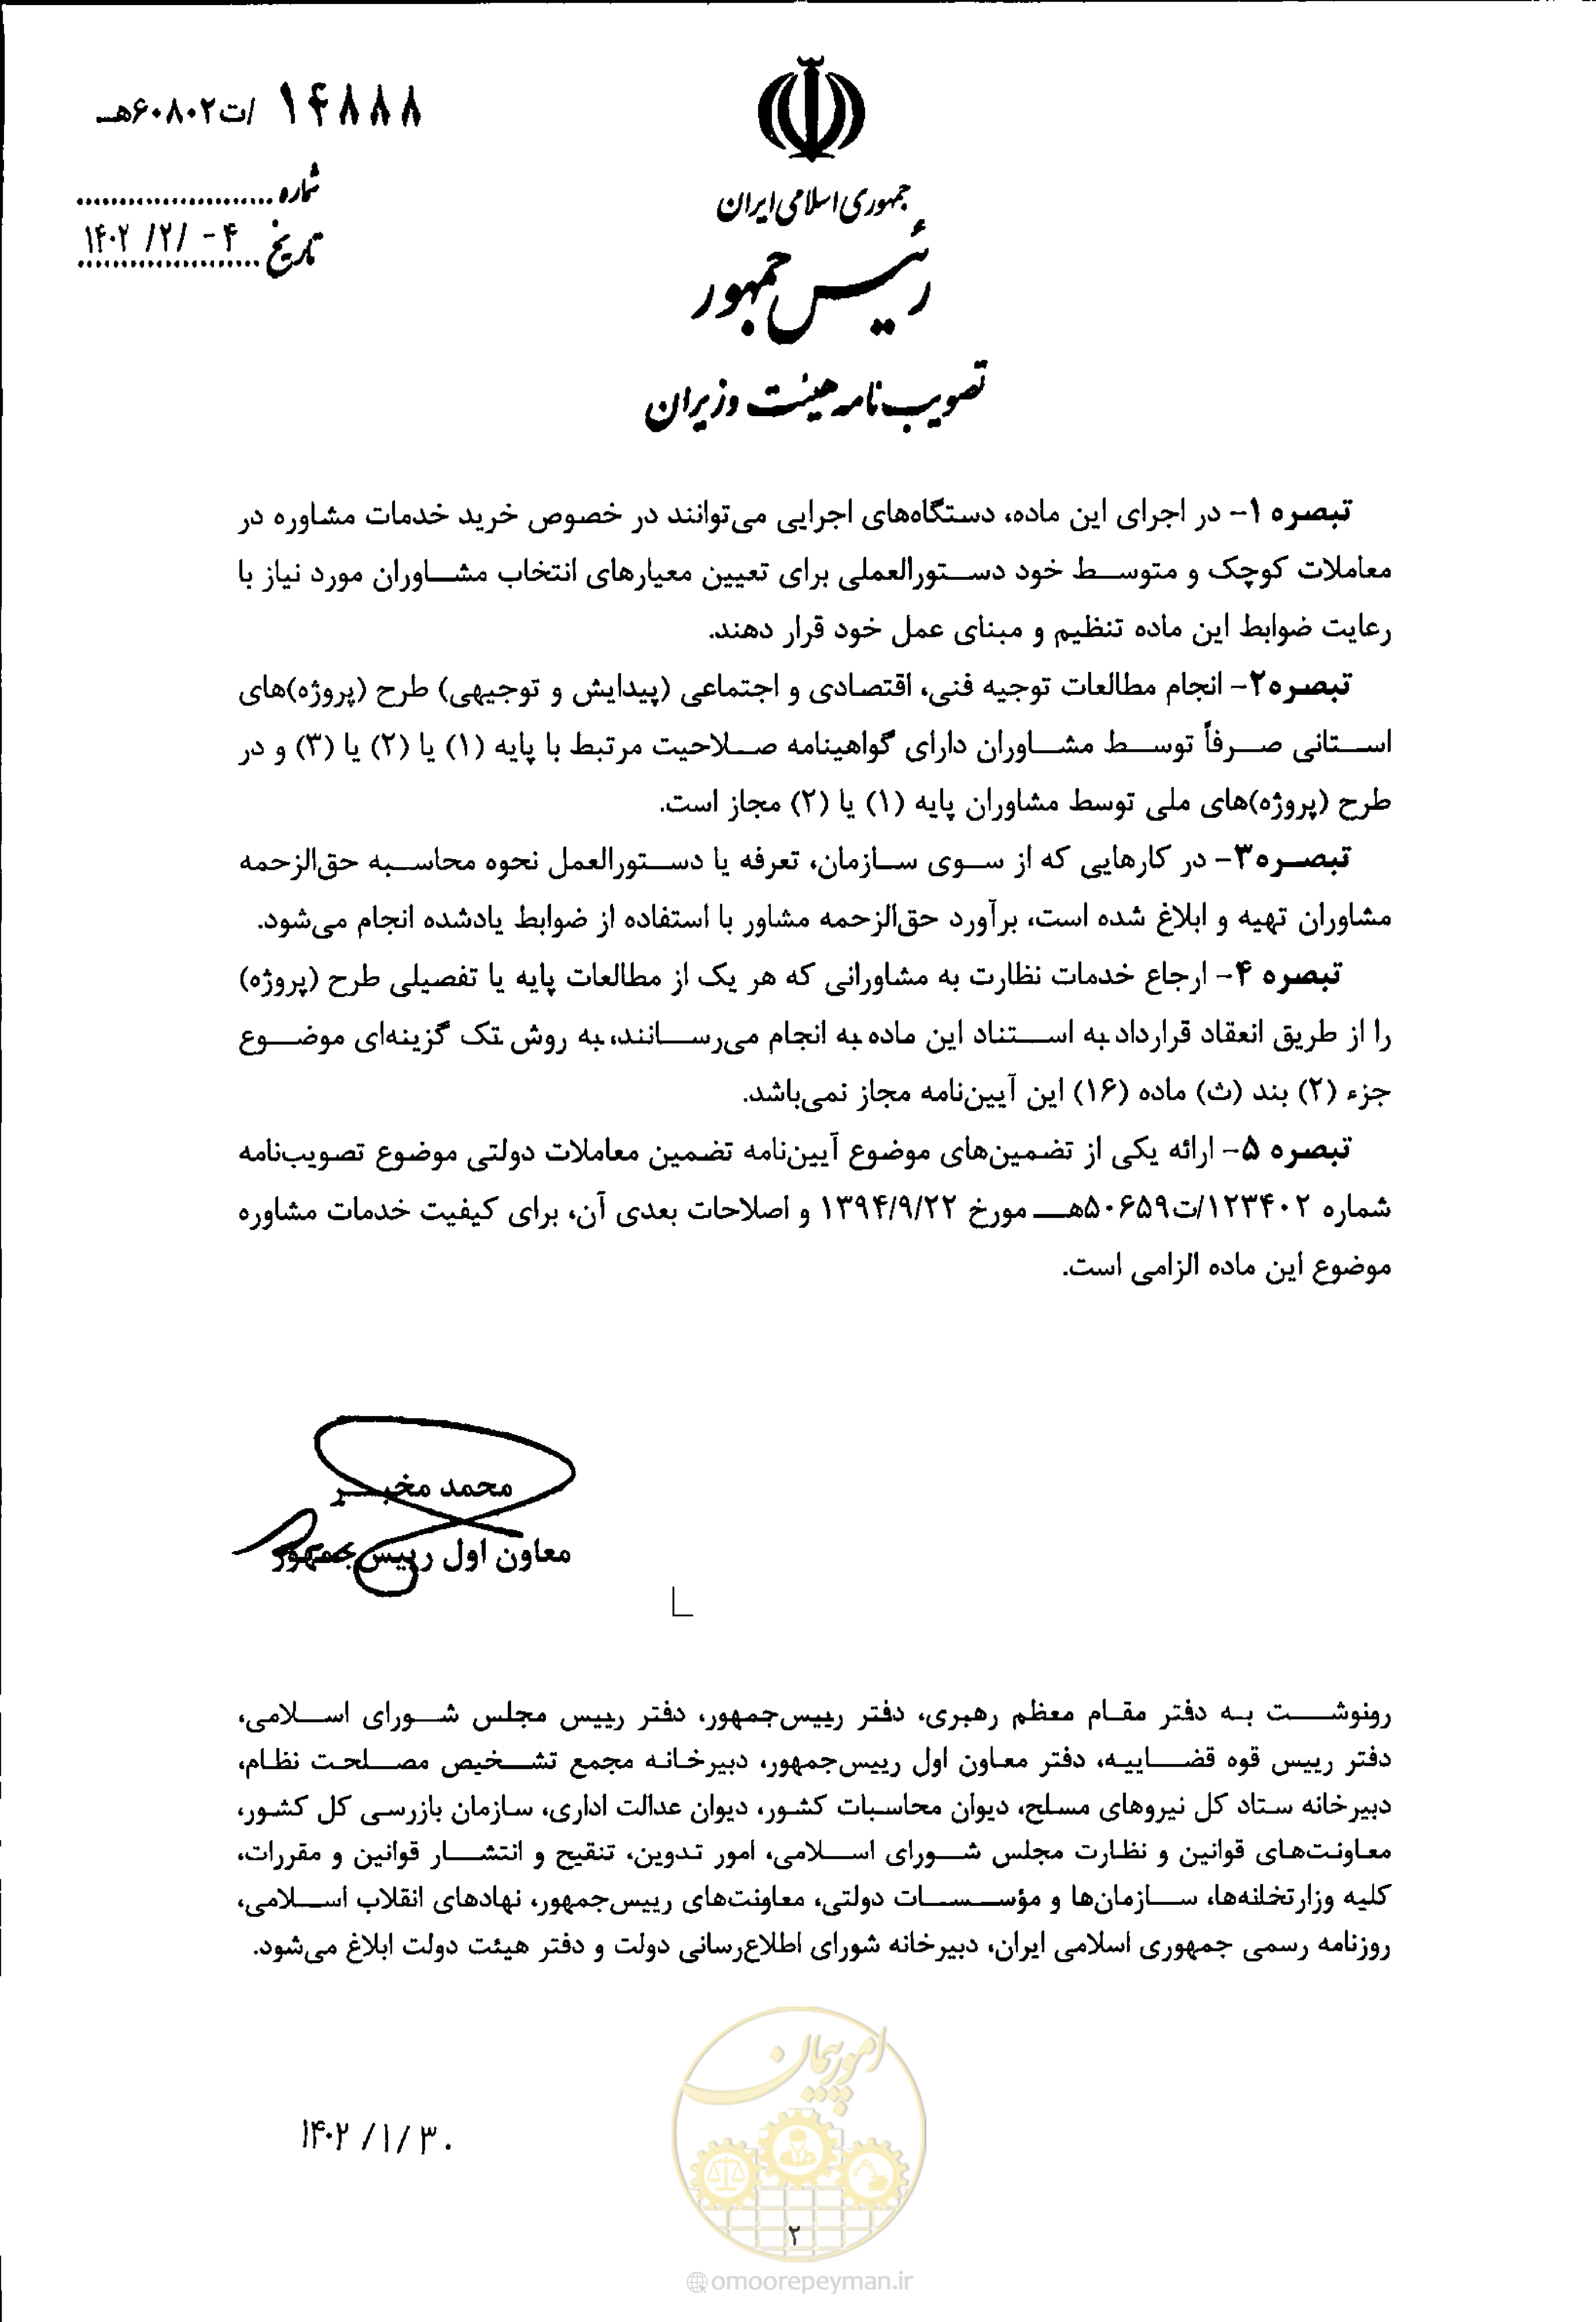 ۱۴۸۸۸ /ت۶۰۸۰۲هـ
شماره
تاریخ ۱۴۰۲ /۲/ -۴
جمهوری اسلامی ایران
رئیس جمهور
تصویب نامه هیئت وزیران
تبصره ۱- در اجرای این ماده، دستگاه‌های اجرایی می‌توانند در خصوص خرید خدمات مشاوره در
معاملات کوچک و متوسط خود دستورالعملی برای تعیین معیارهای انتخاب مشاوران مورد نیاز با
رعایت ضوابط این ماده تنظیم و مبنای عمل خود قرار دهند.
تبصره۲- انجام مطالعات توجیه فنی، اقتصادی و اجتماعی (پیدایش و توجیهی) طرح (پروژه)های
استانی صرفاً توسط مشاوران دارای گواهینامه صلاحیت مرتبط با پایه (۱) یا (۲) یا (۳) و در
طرح (پروژه)های ملی توسط مشاوران پایه (۱) یا (۲) مجاز است.
تبصره۳- در کارهایی که از سوی سازمان، تعرفه یا دستورالعمل نحوه محاسبه حق‌الزحمه
مشاوران تهیه و ابلاغ شده است، برآورد حق‌الزحمه مشاور با استفاده از ضوابط یادشده انجام می‌شود.
تبصره ۴- ارجاع خدمات نظارت به مشاورانی که هر یک از مطالعات پایه یا تفصیلی طرح (پروژه)
را از طریق انعقاد قرارداد به استناد این ماده به انجام می‌رسانند، به روش تک گزینه‌ای موضوع
جزء (۲) بند (ث) ماده (۱۶) این آیین‌نامه مجاز نمی‌باشد.
تبصره ۵- ارائه یکی از تضمین‌های موضوع آیین‌نامه تضمین معاملات دولتی موضوع تصویب‌نامه
شماره ۱۲۳۴۰۲/ت۵۰۶۵۹هـ مورخ ۱۳۹۴/۹/۲۲ و اصلاحات بعدی آن، برای کیفیت خدمات مشاوره
موضوع این ماده الزامی است.
محمد مخبر
معاون اول رییس‌جمهور
رونوشت به دفتر مقام معظم رهبری، دفتر رییس‌جمهور، دفتر رییس مجلس شورای اسلامی،
دفتر رییس قوه قضاییه، دفتر معاون اول رییس‌جمهور، دبیرخانه مجمع تشخیص مصلحت نظام،
دبیرخانه ستاد کل نیروهای مسلح، دیوان محاسبات کشور، دیوان عدالت اداری، سازمان بازرسی کل کشور،
معاونت‌های قوانین و نظارت مجلس شورای اسلامی، امور تدوین، تنقیح و انتشار قوانین و مقررات،
کلیه وزارتخانه‌ها، سازمان‌ها و مؤسسات دولتی، معاونت‌های رییس‌جمهور، نهادهای انقلاب اسلامی،
روزنامه رسمی جمهوری اسلامی ایران، دبیرخانه شورای اطلاع‌رسانی دولت و دفتر هیئت دولت ابلاغ می‌شود.
امور پیمان
۱۴۰۲ /۱/ ۳۰
۲
omoorepeyman.ir